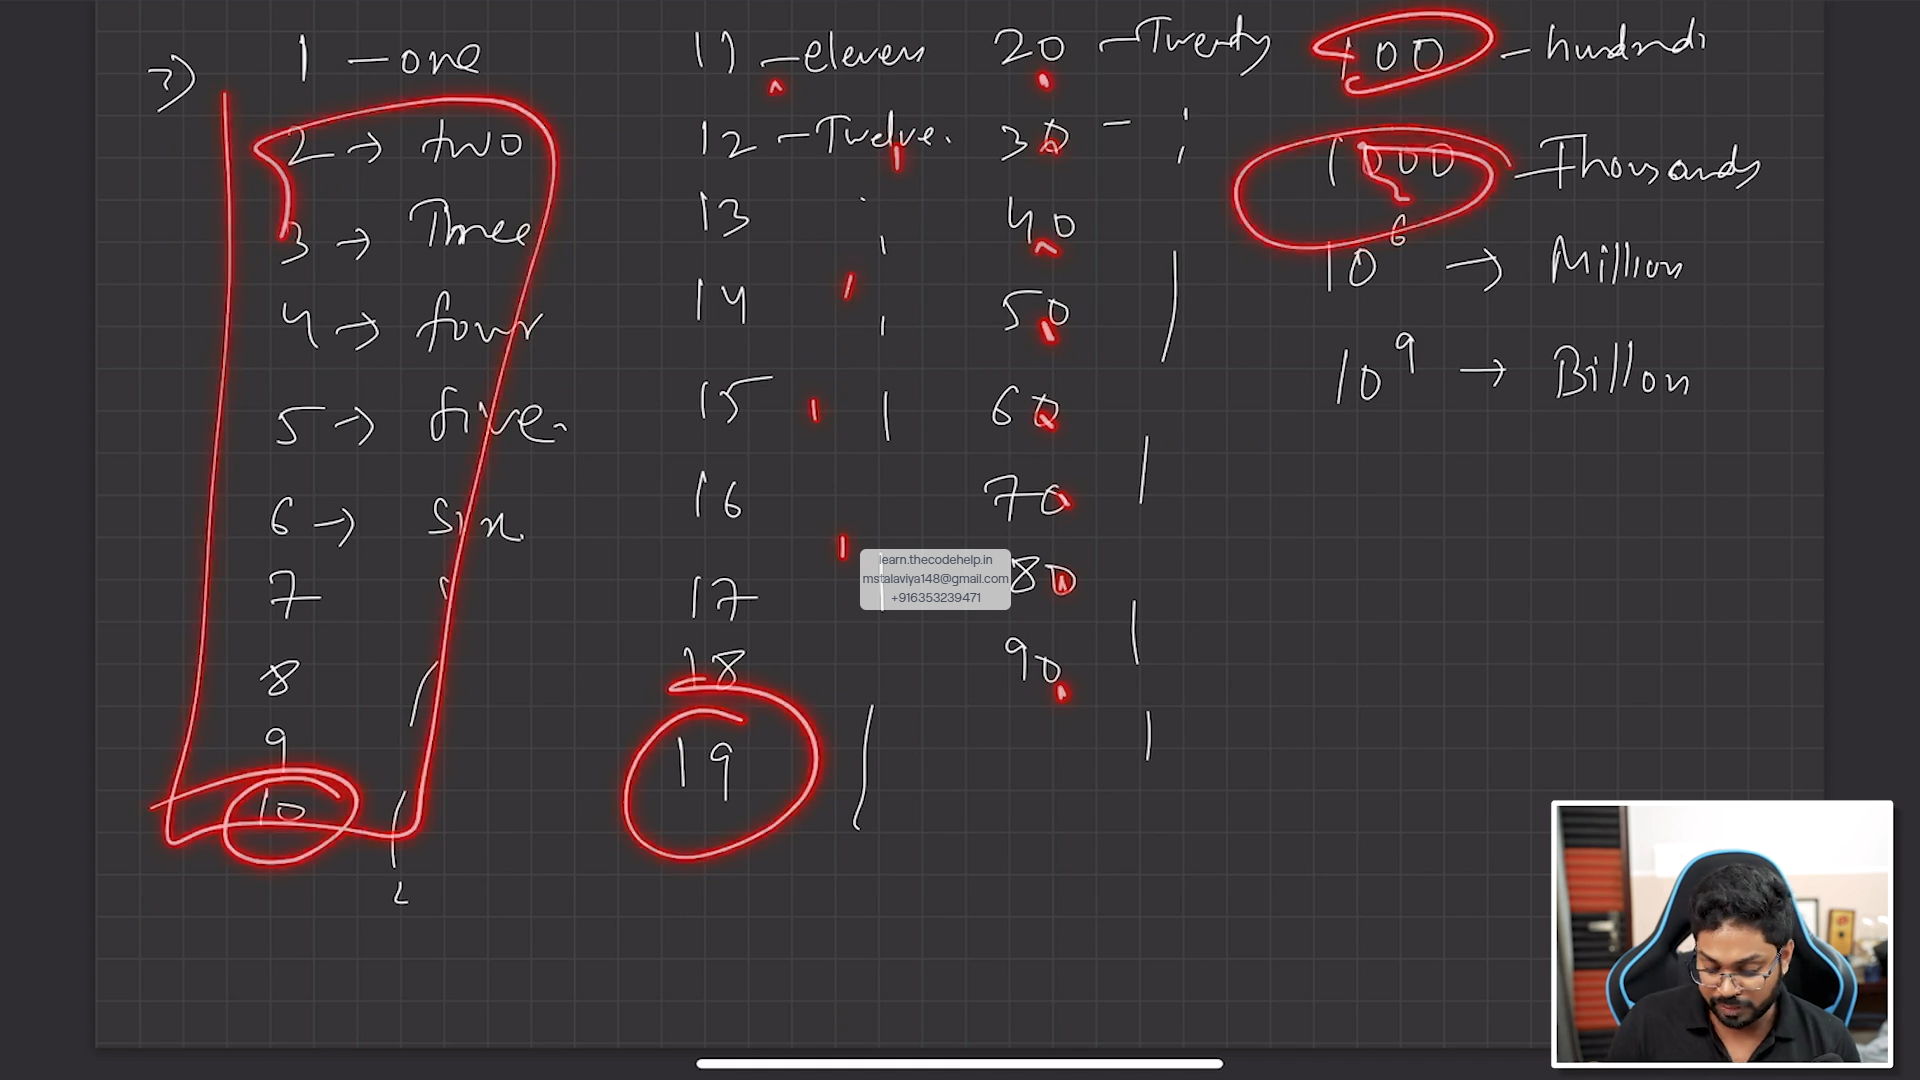 1 - one
2 → two
3 → Three
4 → four
5 → five.
6 → six
7
8
9
10
11 - eleven
12 - Twelve.
13
14
15
16
17
18
19
20 - Twenty
30 -
40
50
60
70
80
90
100 - hundred
1000 - Thousands
10^6 → Million
10^9 → Billon
learn.thecodehelp.in
mstalaviya148@gmail.com
+916353239471